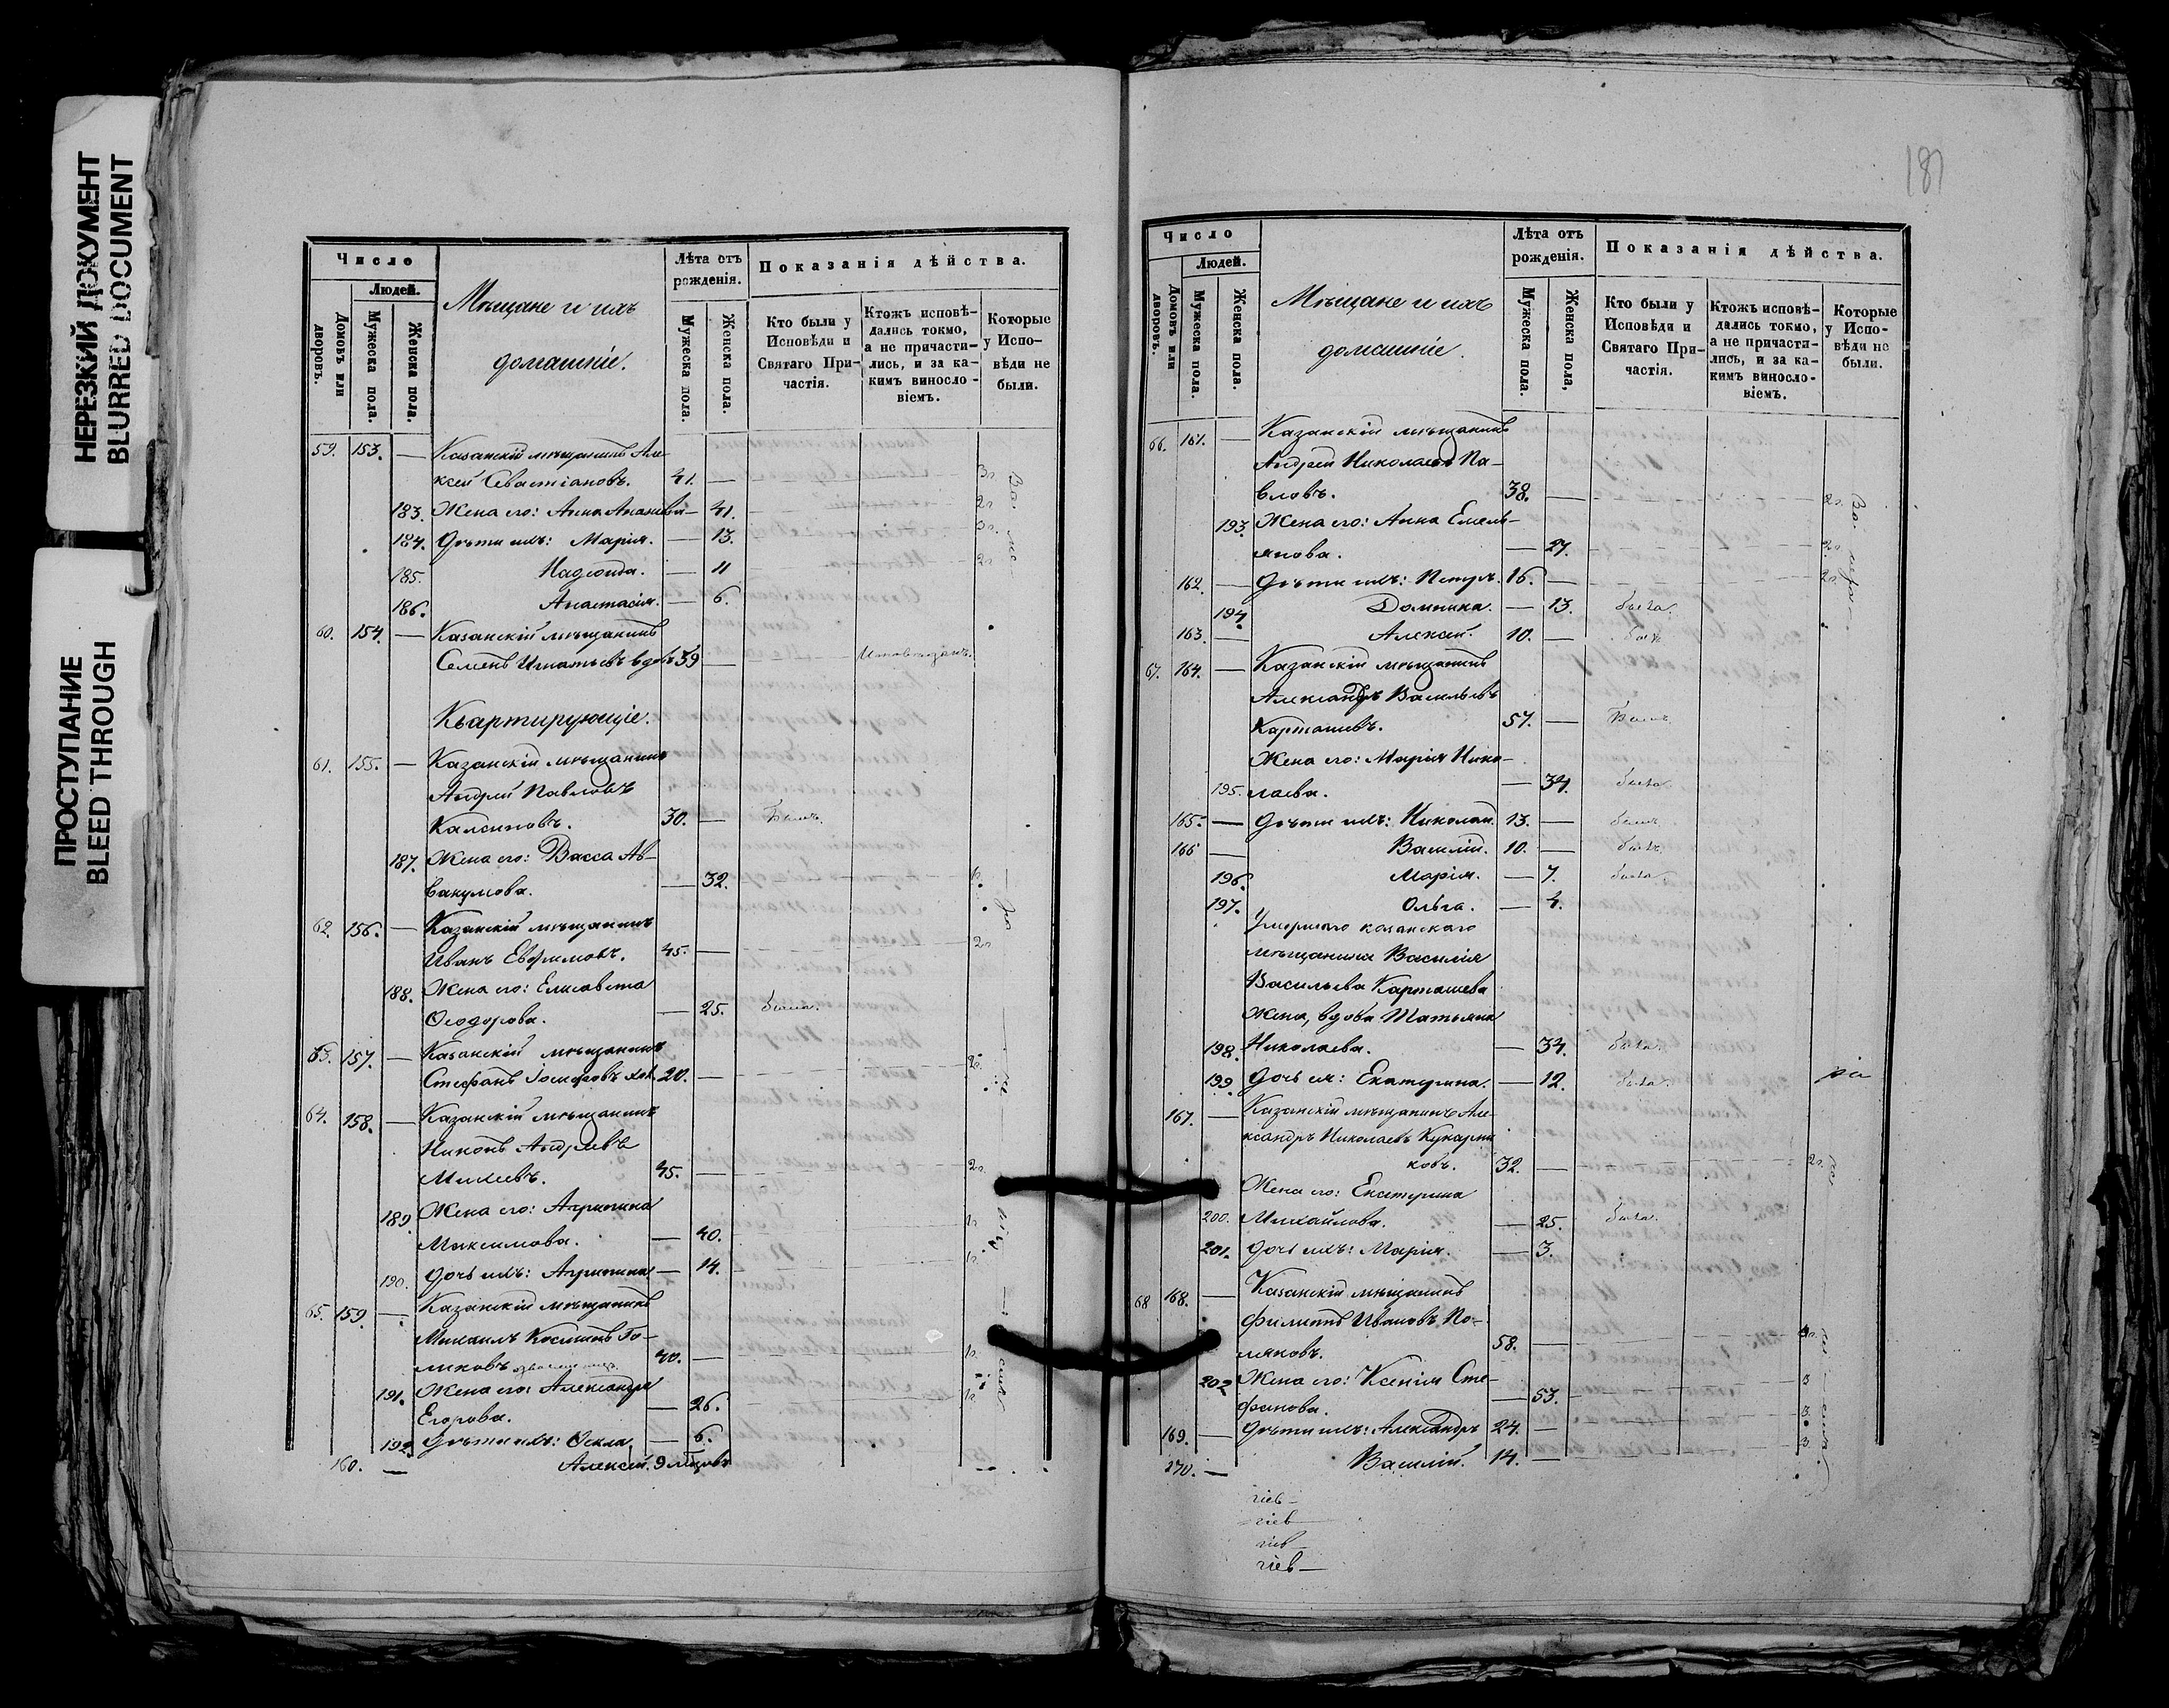 НЕРЕЗКИЙ ДОКУМЕНТ
BLURRED DOCUMENT
ПРОСТУПАНИЕ
BLEED THROUGH
Число
Людей.
Домовъ или дворовъ.
Мужеска пола.
Женска пола.
Мѣщане и ихъ
домашніе.
Лѣта отъ рожденія.
Мужеска пола.
Женска пола.
Показанія дѣйства.
Кто были у Исповѣди и Святаго Причастія.
Ктожъ исповѣдались токмо, а не причастились, и за какимъ винословіемъ.
Которые у Исповѣди не были.
59. 153. — Казанскій мѣщанинъ Але-
ксей Севастіановъ. 41. —
183. Жена его: Анна Ананьева — 41.
184. Дѣти ихъ: Марія. — 13.
185. Надежда. — 11
186. Анастасія. — 6.
60. 154. — Казанскій мѣщанинъ
Семенъ Игнатьевъ вдовъ 59 —
Квартирующіе.
61. 155. — Казанскій мѣщанинъ
Андрей Павловъ
30. — Былъ.
187. Жена его: Васса Ав-
вакумова. — 32.
62. 156. — Казанскій мѣщанинъ
Иванъ Евфимовъ. 45. —
188. Жена его: Елисавета
Ѳеодорова. — 25. была.
63. 157. — Казанскій мѣщанинъ
Стефанъ 20. —
64. 158. — Казанскій мѣщанинъ
Никонъ Андреевъ
Михеевъ. 45. —
189. Жена его: Агрипина
Максимова. — 40.
190. Дочь ихъ: Агрипина — 14.
65. 159. — Казанскій мѣщанинъ
Михаилъ Косминъ Го-
ликовъ 40. —
191. Жена его: Александра
Егорова. — 26.
192. Дѣти ихъ: Ѳекла — 6.
160. — Алексей. 9 мѣсяцовъ
181
Число
Людей.
Домовъ или дворовъ.
Мужеска пола.
Женска пола.
Мѣщане и ихъ
домашніе.
Лѣта отъ рожденія.
Мужеска пола.
Женска пола,
Показанія дѣйства.
Кто были у Исповѣди и Святаго Причастія.
Ктожъ исповѣдались токмо, а не причастились, и за какимъ винословіемъ.
Которые у Исповѣди не были.
66. 161. — Казанскій мѣщанинъ
Андрей Николаевъ Па-
вловъ. 38. — 2г.
193. Жена его: Анна Емель-
янова. — 27. 2г.
162. — Дѣти ихъ: Петръ. 16. — 2г.
194. Домника. — 13. была.
163. — Алексей. 10. — былъ
67. 164. — Казанскій мѣщанинъ
Александръ Васильевъ
Карташевъ. 57. — Былъ
Жена его: Марія Нико-
195. лаева. — 34. была
165. — Дѣти ихъ: Николай. 13. — былъ
166 — Василій. 10. — былъ.
196. Марія. — 7. была
197. Ольга. — 4.
Умершаго казанскаго
мѣщанина Василія
Васильева Карташева
жена, вдова Татьяна
198. Николаева. — 34. была.
199. Дочь ея: Екатерина. — 12. была.
167. — Казанскій мѣщанинъ Але-
ксандръ Николаевъ Кукарни
ковъ. 32. — 2г.
Жена его: Екатерина
200. Михайлова. — 25. была.
201. Дочь ихъ: Марія. — 3.
68 168. — Казанскій мѣщанинъ
Филиппъ Ивановъ По-
ляковъ. 58. —
202 Жена его: Ксенія Сте-
фанова. — 53.
169. — Дѣти ихъ: Александръ 24. —
170. — Василій. 14. —